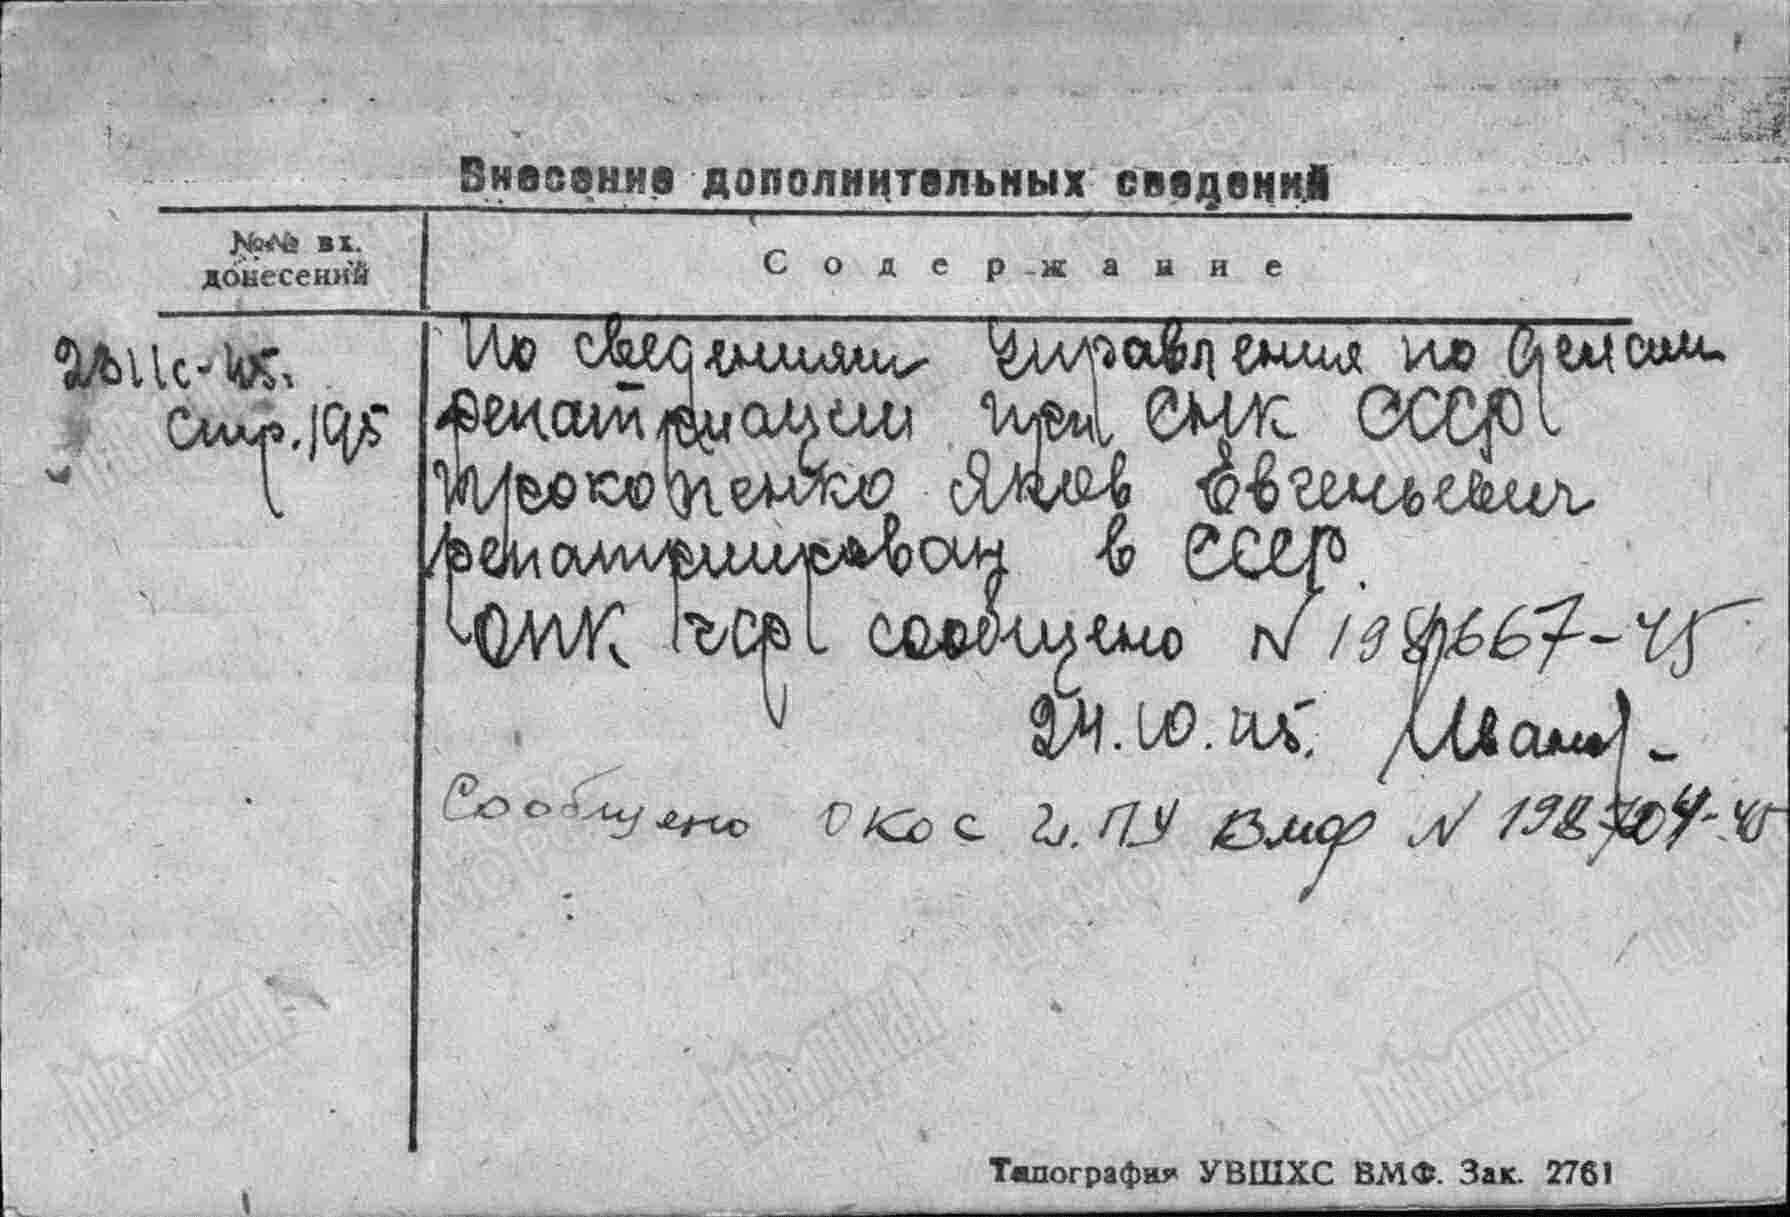 Внесение дополнительных сведений
№№ вх.
донесений
Содержание
По сведениям Управления по делам
стр. 195
репатриации при СНК СССР
Прокопенко Яков Евгеньевич
репатриирован в СССР.
сообщено N 198667-45
24.10.45.
Сообщено ОКОС Гл. ПУ ВМФ N 198704-45
Типография УВШХС ВМФ. Зак. 2761
Мемориал
Мемориал
Мемориал